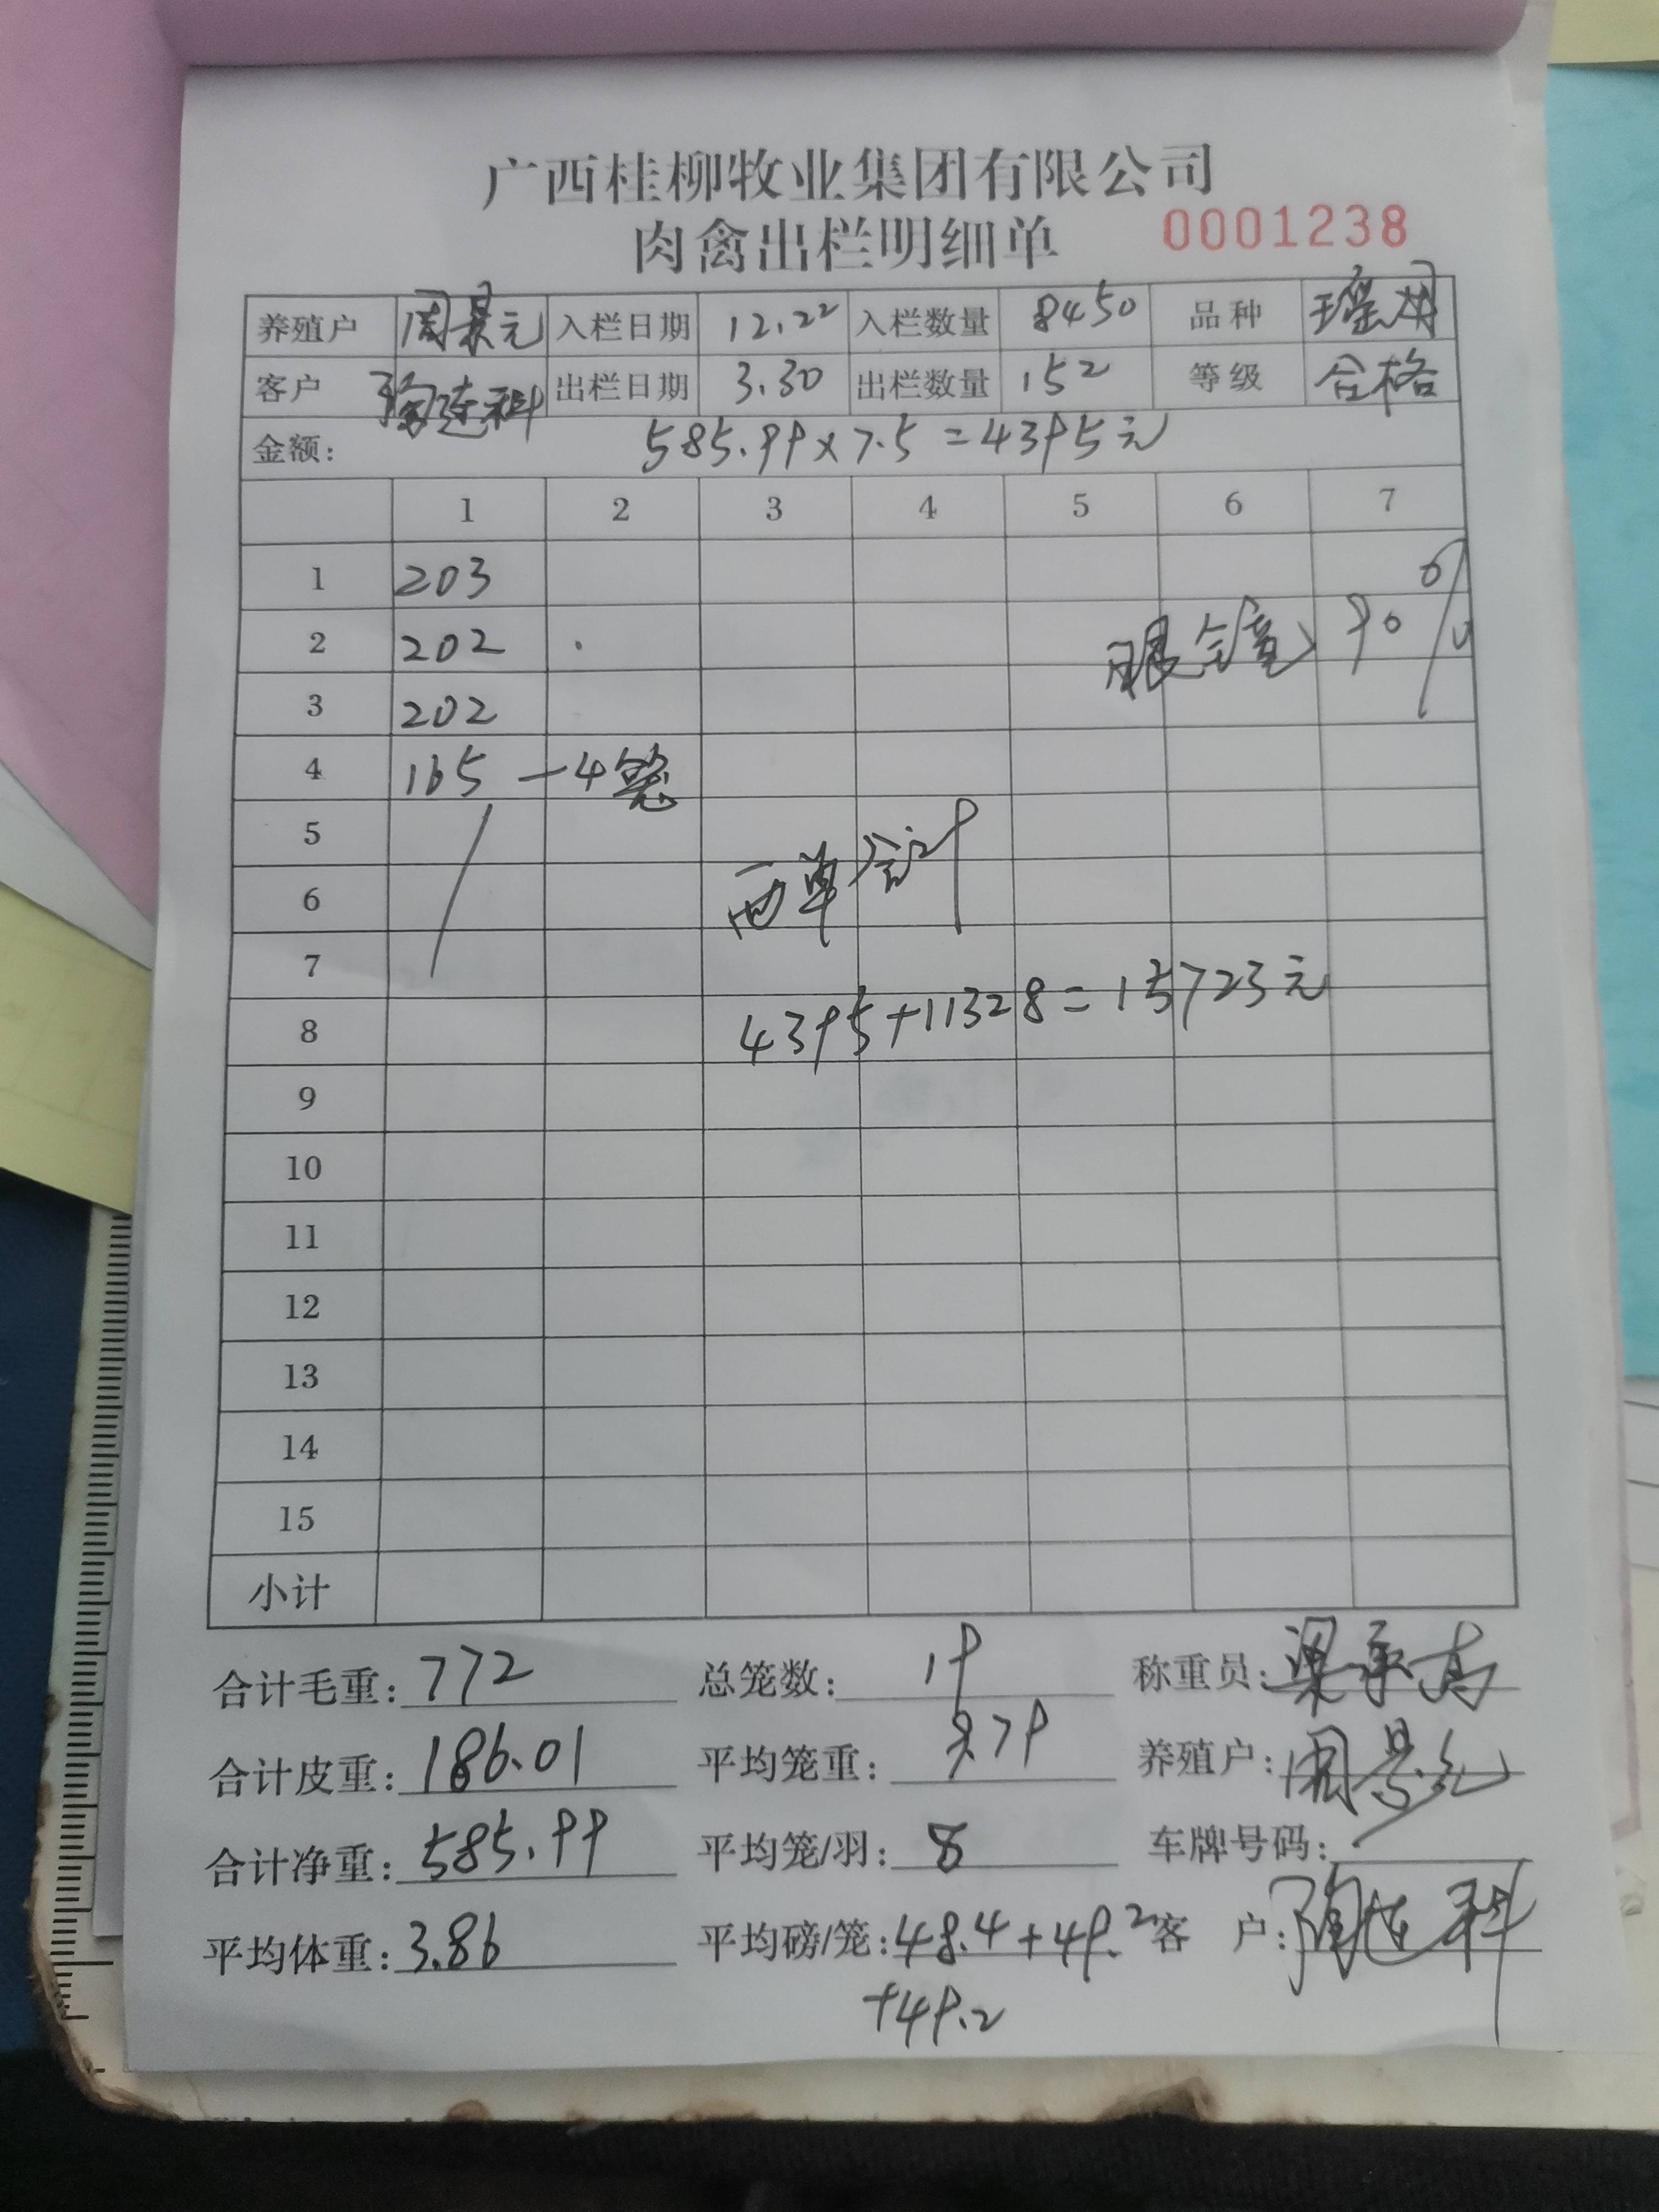 广西桂柳牧业集团有限公司
肉禽出栏明细单 0001238
养殖户 周景元 入栏日期 12.22 入栏数量 8450 品种 瑶鸡
客户 陶连科 出栏日期 3.30 出栏数量 152 等级 合格
金额: 585.99×7.5=4395元
1 2 3 4 5 6 7
1 203
2 202 眼镜90%
3 202
4 165 —4笼
5
6 两单合计
7
8 4395+11328=15723元
9
10
11
12
13
14
15
小计
合计毛重: 772 总笼数: 19 称重员: 梁承
合计皮重: 186.01 平均笼重: 9.79 养殖户: 周景元
合计净重: 585.99 平均笼/羽: 8 车牌号码:
平均体重: 3.86 平均磅/笼: 48.4+49.2 客户: 陶连科
+49.2